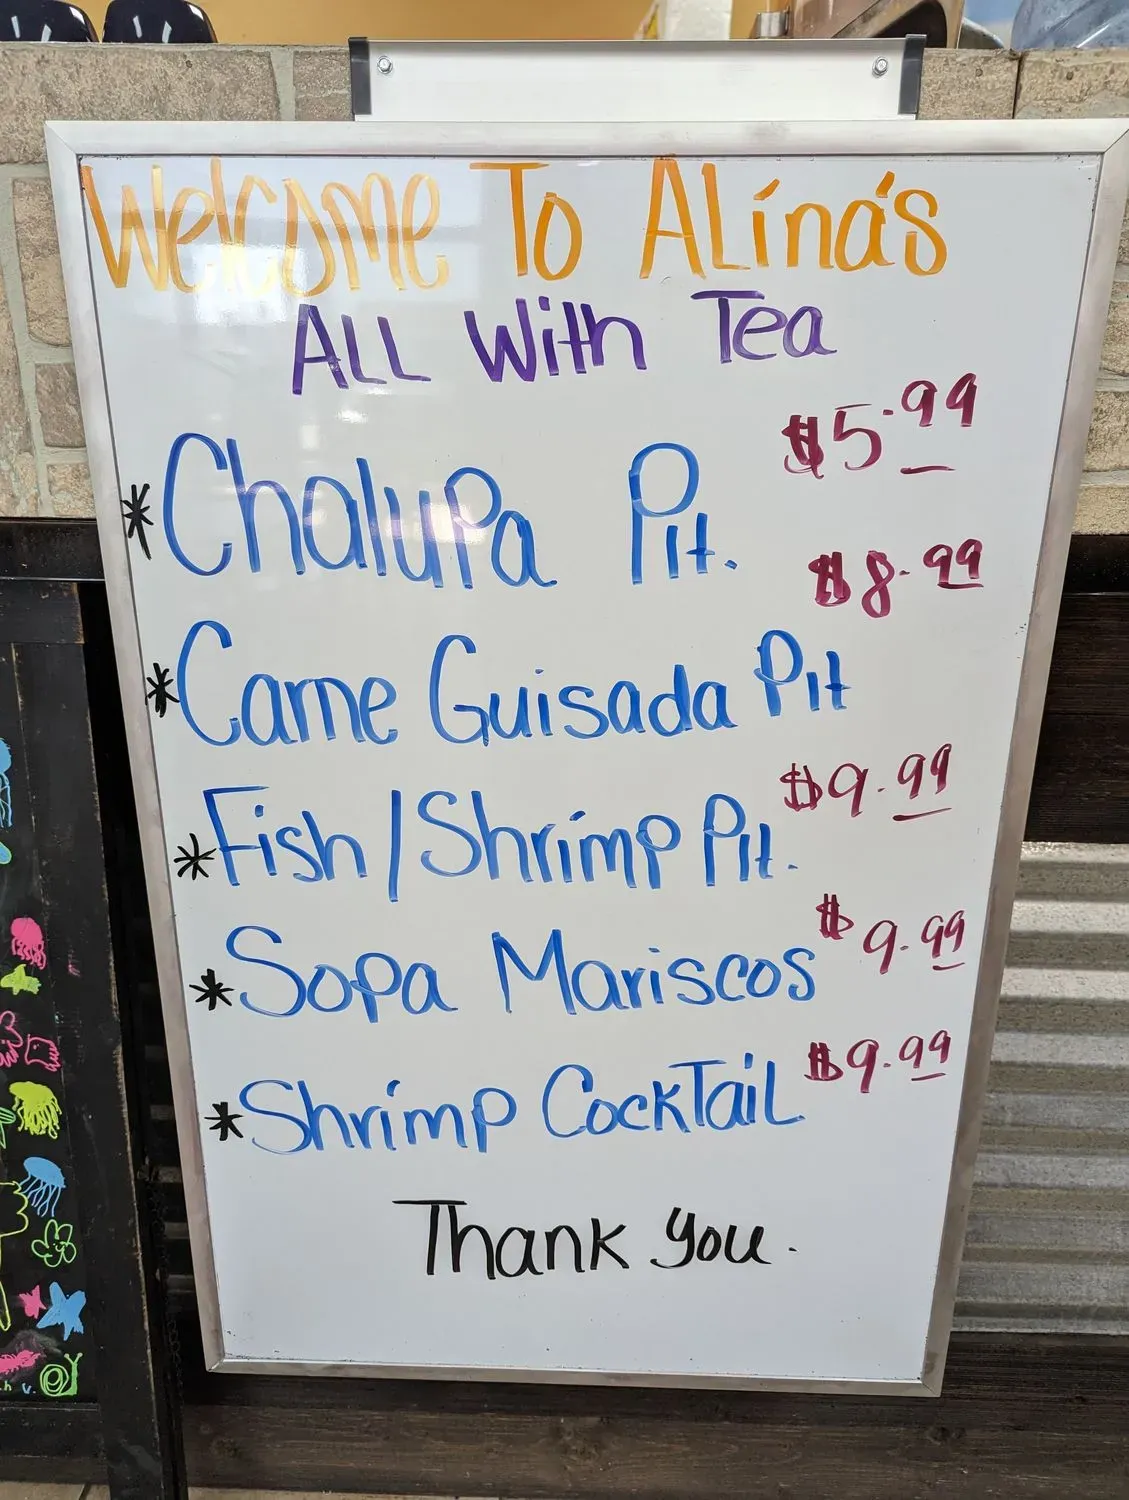 Welcome To ALina's
ALL With Tea
$5.99
*Chalupa Plt.
$8.99
*Carne Guisada Plt
$9.99
*Fish/Shrimp Plt.
$9.99
*Sopa Mariscos
$9.99
*Shrimp CockTaiL
Thank you.